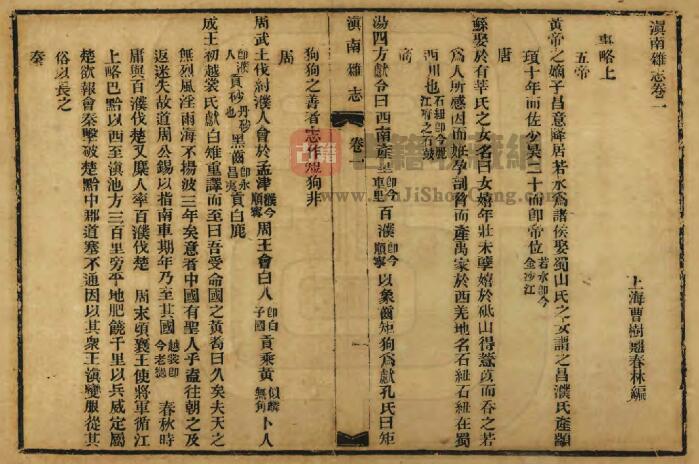 滇南雜志卷一
上海曹樹翹春林編
事略上
五帝
黃帝之嫡子昌意降居若水為諸侯娶蜀山氏之女謂之昌濮氏產顓
頊十年而佐少昊二十而卽帝位若水卽今金沙江
唐
鯀娶於有莘氏之女名曰女嬉年壯未孳嬉於砥山得薏苡而吞之若
為人所感因而姙孕剖脅而產禹家於西羌地名石紐石紐在蜀
西川也石紐卽今麗江府之石鼓
商
湯四方獻令曰西南產里卽今車里百濮卽今順寧以象齒矩狗為獻孔氏曰矩
滇南雜志 卷一
狗狗之善者志作短狗非
周
周武王伐紂濮人會於孟津濮今順寧周王會白人卽白子國貢乘黃似麟無角卜人
卽濮人貢砂丹砂黑齒卽永昌夷貢白鹿
成王初越裳氏獻白雉重譯而至曰吾受命國之黃耇曰久矣夫天之
無烈風淫雨海不揚波三年矣意者中國有聖人乎盍往朝之及
返迷失故道周公錫以指南車期年乃至其國越裳卽今老撾 春秋時
庸與百濮伐楚又麇人率百濮伐楚 周末頃襄王使將軍循江
上略巴黔以西至滇池方三百里旁平地肥饒千里以兵威定屬
楚欲報會秦擊破楚黔中郡道塞不通因以其衆王滇變服從其
俗以長之
秦
古籍
古籍收藏網
GuJiShouCang.com